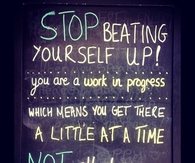 STOP BEATING
YOURSELF UP!
you are a work in progress
WHICH MEANS YOU GET THERE
A LITTLE AT A TIME
NOT